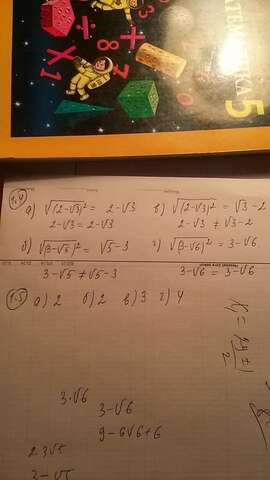 МАТЕМАТИКА 5
1.4
а) √(2-√3)² = 2-√3
2-√3 = 2-√3
в) √(2-√3)² = √3-2
2-√3 ≠ √3-2
б) √(3-√5)² = √5-3
3-√5 ≠ √5-3
г) √(3-√6)² = 3-√6
3-√6 = 3-√6
1.5 а) 2 б) 2 в) 3 г) 4
3·√6
3-√6
9-6√6+6
2·3√5
3-√5